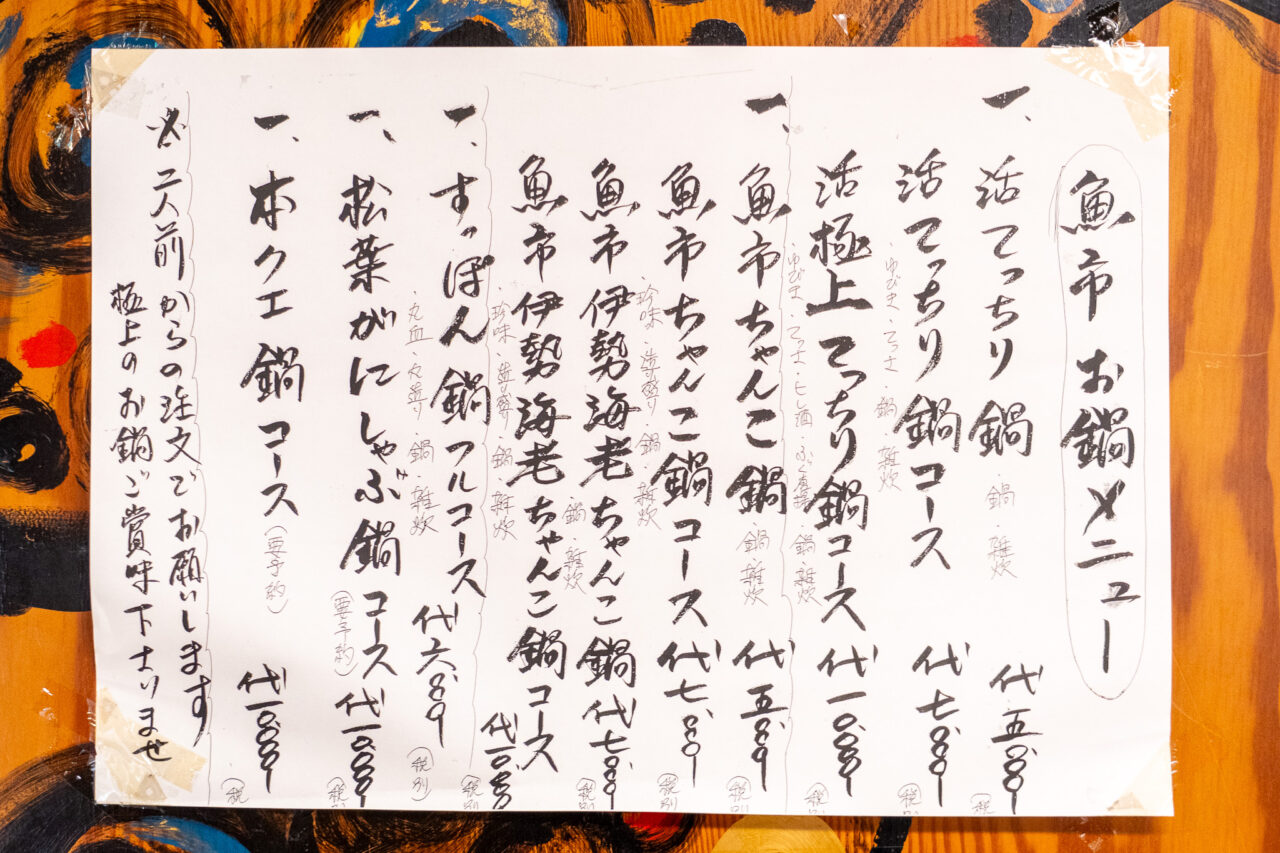 魚市お鍋メニュー
一、活てっちり鍋 ・鍋・雑炊 代五、〇〇〇
活てっちり鍋コース 代七、〇〇〇 (税別)
・ゆびき・てっさ・鍋・雑炊
活極上てっちり鍋コース 代一〇、〇〇〇
・ゆびき・てっさ・ヒレ酒・ふぐ唐揚・鍋・雑炊
一、魚市ちゃんこ鍋 ・鍋・雑炊 代五、〇〇〇 (税別)
魚市ちゃんこ鍋コース 代七、〇〇〇 (税別)
・珍味・造り盛り・鍋・雑炊
魚市伊勢海老ちゃんこ鍋 代七、〇〇〇 (税別)
・鍋・雑炊
魚市伊勢海老ちゃんこ鍋コース 代一〇、〇〇〇 (税別)
・珍味・造り盛り・鍋・雑炊
一、すっぽん鍋フルコース 代六、〇〇〇 (税別)
・丸血・丸造り・鍋・雑炊
一、松葉がにしゃぶ鍋コース (要予約) 代一〇、〇〇〇
一、本クエ鍋コース (要予約) 代一〇、〇〇〇 (税
※二人前からの注文でお願いします
極上のお鍋ご賞味下さいませ